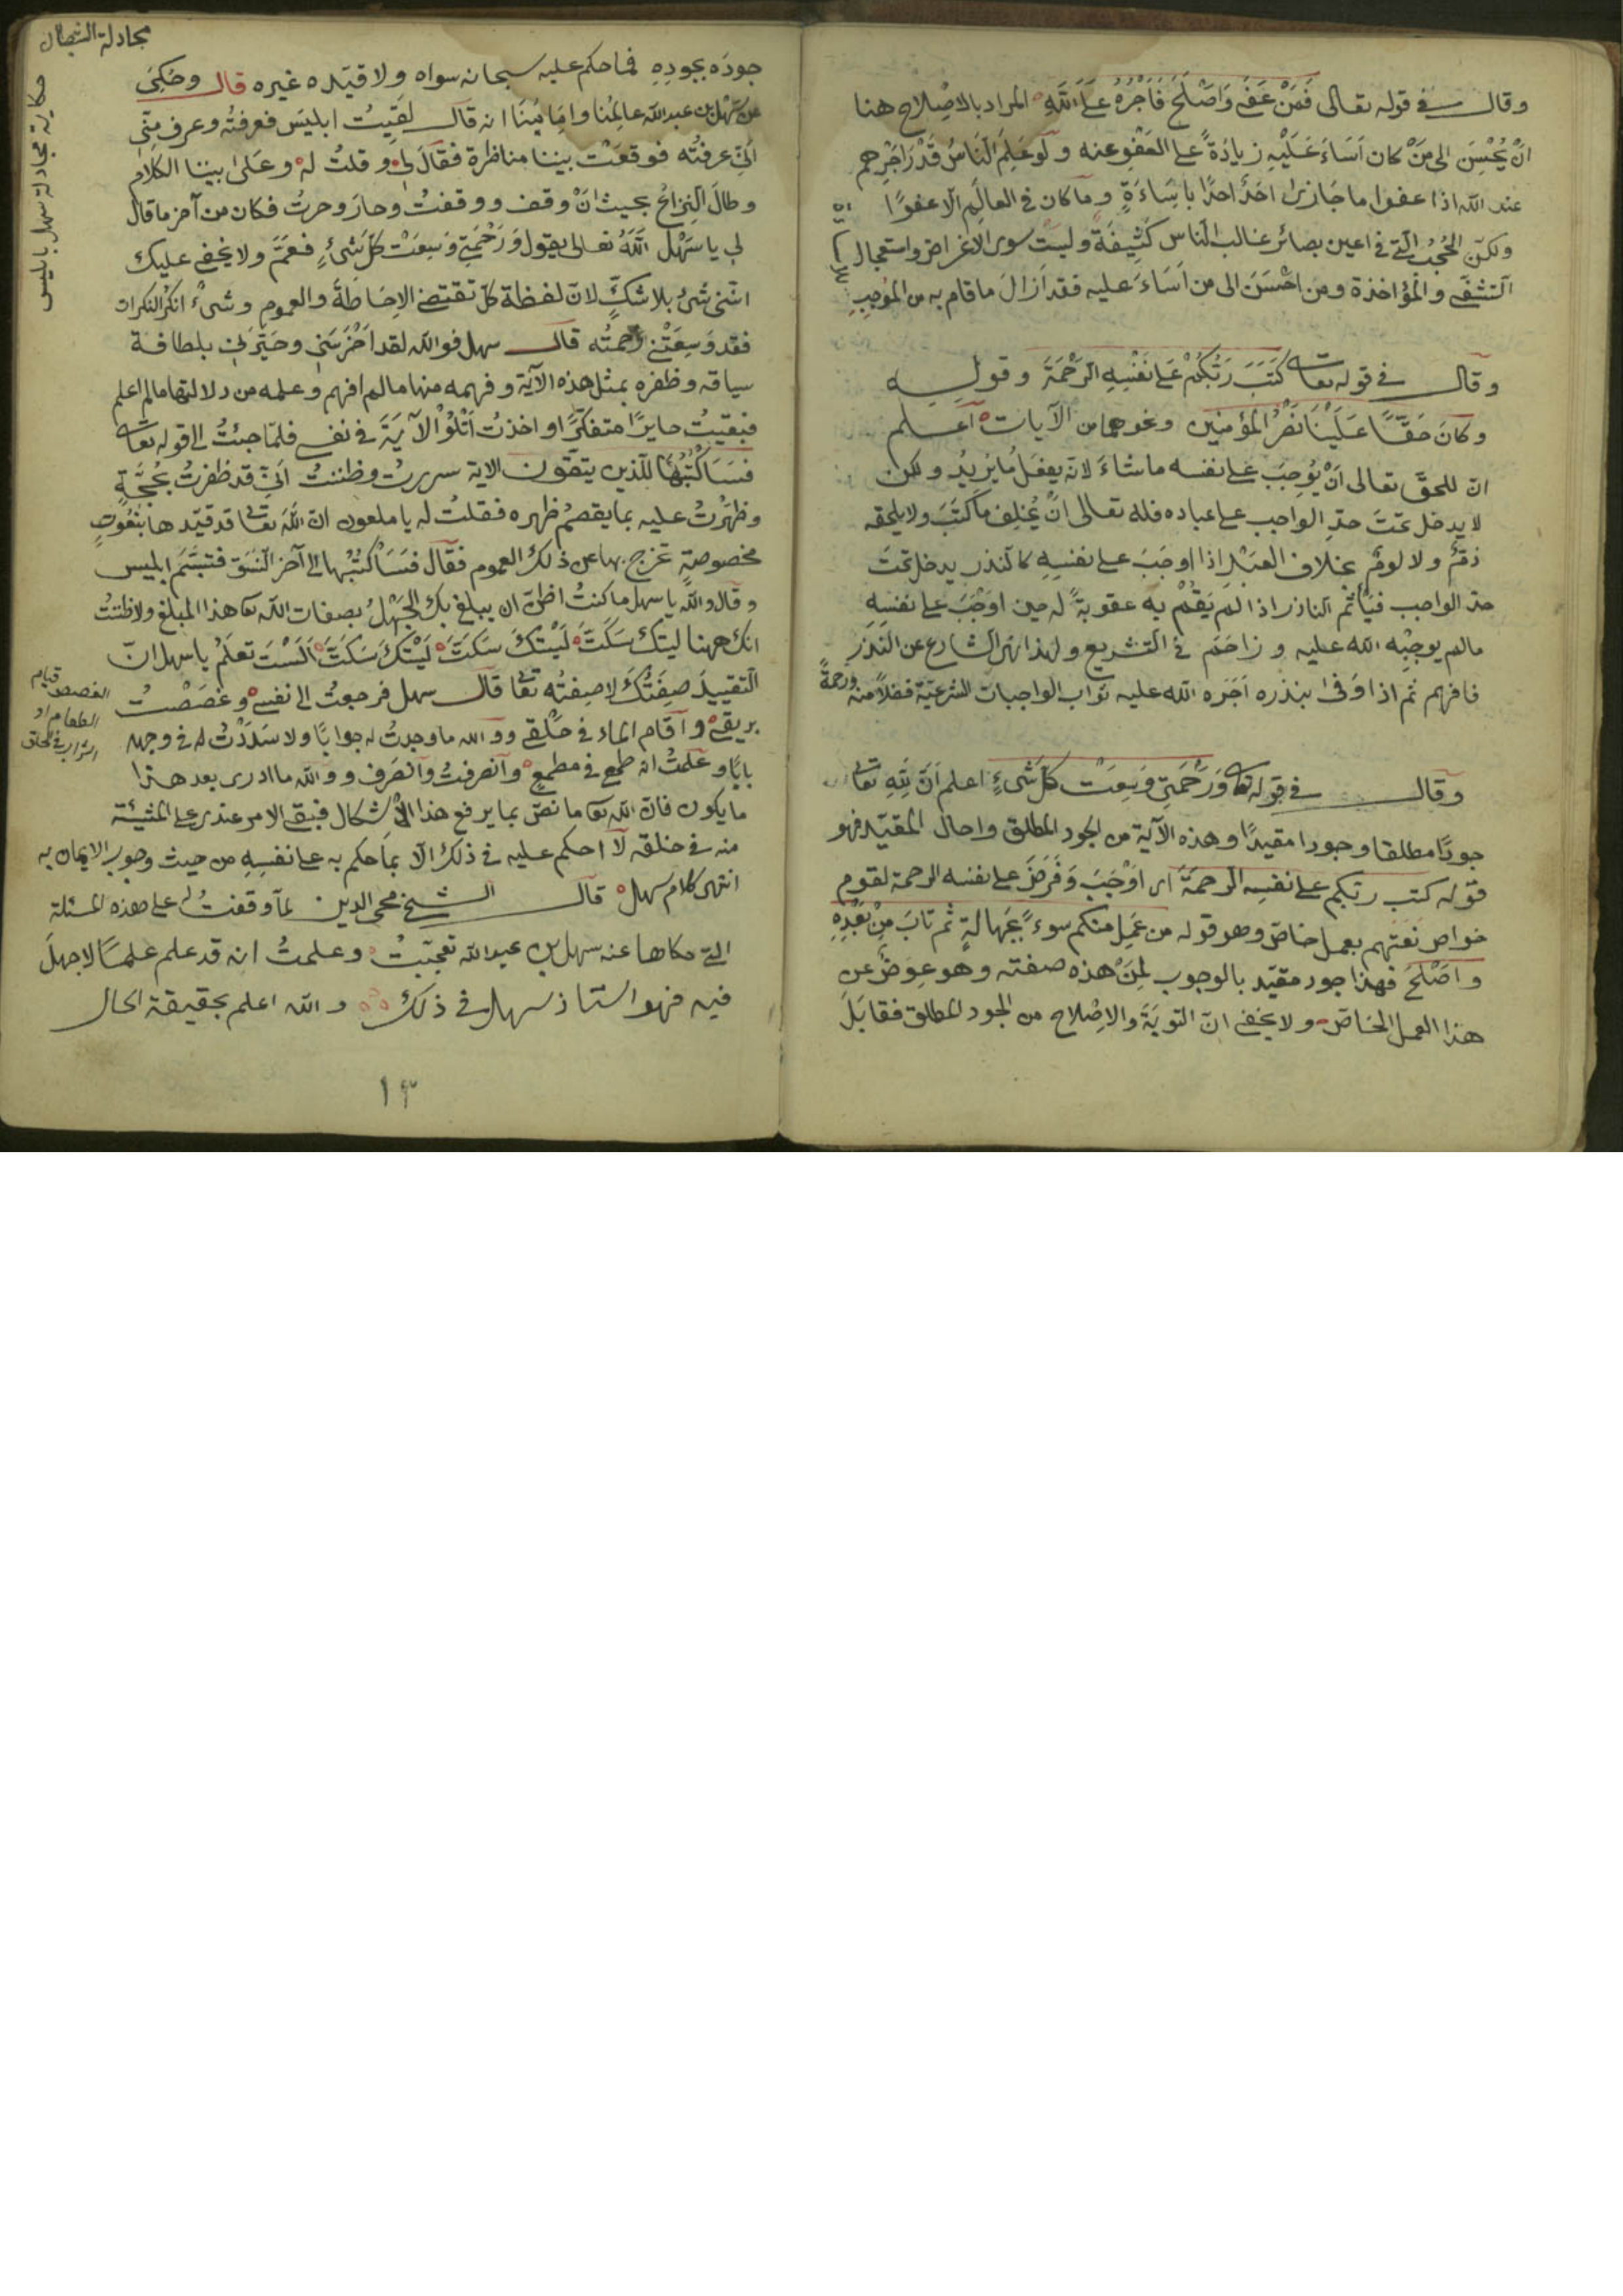 وقال في قوله تعالى فَمَنْ عَفَى وَاَصْلَحَ فَاَجْرُهُ عَلَى اللَّهِ المراد بالاصْلاح هنا
انْ يُحْسِنَ الى مَنْ كان اَسَاءَ عَلَيْهِ زيادَةً على العَفْوِ عنه ولو عَلِمَ النَّاسُ قَدْرَ اَجْرِهم
عند الله اذا عفوا ما جَازى احَدٌ احدًا باِسَاءَةٍ وما كان فى العالَم الّا عفوًا
ولكنّ الحُجُبُ الّتى فى اعين بصائر غالب النّاس كَثِيفَةٌ وليسَتْ سوى الاغراض واستعجال
التشفّى والمؤاخذة ومن اَحْسَنَ الى من اَسَاءَ عليه فقد اَزالَ ما قام به من الموجِبِ
وقال فى قوله تعالى كَتَبَ رَبُّكُمْ عَلى نَفْسِهِ الرَّحْمَةَ وقوله
وكانَ حَقًّا عَلَيْنَا نَصْرُ المؤمنين ونحوهما من الآيات اعلم
انّ للحقّ تعالى اَنْ يُوجِبَ على نفسه ما شاءَ لانّه يفعَلُ ما يُريدُ ولكن
لا يدخل تحتَ حدّ الواجب على عباده فله تعالى انْ يُخلِفَ ما كَتَبَ ولا يلحقه
ذمٌّ ولا لومٌ بخلاف العَبْد اذا اوجَبَ على نفسِهِ كالنذر يدخل تحتَ
حدّ الواجب فيَأثَم الناذر اذا لم يَقُمْ به عقوبةً له حين اوْجَبَ على نفسِهِ
مالم يوجِبْه الله عليه وزاحَمَ فى التشريع ولهذا نهى الشارع عن النَّذر
فافهم ثم اذا وَفى بنذره اَجَرَه الله عليه ثواب الواجبات الشرعيّة فضلاً منه ورحمةً
وقال فى قوله تعالى وَرَحْمَتِى وَسِعَتْ كلّ شَىْءٍ اعلم اَنَّ لِلّهِ تعالى
جودًا مطلقا وجودا مقيدًا وهذه الآية من الجود المطلق واحال المقيّد فهو
قوله كتب ربّكم على نفسِهِ الرحمةَ اى اوْجَبَ وَفَرَضَ على نفسه الرحمة لقوم
خواص نعتهم بعمل خاصّ وهو قوله من عَمِلَ منكم سوءً بجَهالةٍ ثم تابَ مِنْ بَعْدِهِ
واَصْلَحَ فهذا جود مقيّد بالوجوب لِمَنْ هذه صفته وهو عِوَضٌ عن
هذا العمل الخاصّ ولا يخفى انّ التوبَةَ والاِصْلاح من الجود المطلق فقابَلَ
مجادلة الشيطان
حكاية مجادلة سهل بابليس
جودَه بجودِهِ فما حكم عليه سبحانه سواه ولا قيّده غيره قال وحُكِىَ
عن سَهْل بن عبد الله عالِمُنا واِمَامُنَا انه قال لقيتُ ابليسَ فعرفتُه وعرف منّى
انّى عرفتُه فوقعَتْ بيننا مناظرة فقالَ لى وقلتُ لَه وعَلىٰ بيننا الكلامُ
وطالَ النِزاعُ بحيث انْ وقف ووقفتُ وحارَ وحرتُ فكان من آخر ما قال
لى يا سَهْل اللهُ تعالى يقول وَرَحْمَتِى وَسِعَتْ كلّ شَىْءٍ فعَمَّ ولا يخفى عليك
انّنى شَىْءٌ بلا شكٍّ لانّ لفظة كلّ تقتضى الاحَاطَةَ والعموم وشَىْءٌ انكرُ النكرات
فقد وَسِعَتْنى رحمتُه قال سهل فوالله لقد اَخْرَسَنى وحيّرَنى بلطافة
سياقه وظفره بمثل هذه الآية وفهمه منها مالم افهم وعلمه من دلالتها مالم اعلم
فبقيتُ حايرًا متفكّرًا واخذتُ اَتْلُوْ الآيَةَ فى نفسى فلمّا جئتُ الى قوله تعالى
فَسَاَكْتُبُهَا للّذين يتّقون الاية سررتُ وظننتُ انّى قد ظفرتُ بحُجَّةٍ
وظهَرْتُ عليه بما يقصمُ ظهره فقلتُ له يا ملعون انّ اللّهَ تعالى قد قيّدها بنعُوتٍ
مخصوصةٍ تخرج بها عن ذلك العموم فقال فَسَاَكْتُبُها الى آخر النّسَق فتبسَّمَ ابليس
وقال والله يا سهل ما كنتُ اظنّ ان يبلغ بك الجَهْلُ بصفات الله تعا هذا المبلغ ولا ظننتُ
انك ههنا ليتك سَكَتَّ لَيْتَكَ سَكَتَّ لَيْتَكَ سَكَتَّ اَلَسْتَ تعلَمُ يا سهل انّ
التقييدَ صِفَتُكَ لا صِفتُه تعا قال سهل فرجعتُ الى نفسى وغصَصْتُ
بريقى واَقَام الماء فى حَلْقى ووالله ما وجدتُ له جوابًا ولا سَدَدْتُ له فى وجهه
بابًا وعلمتُ انه طمع فى مطمعٍ وانصرفتُ وانصَرف ووالله ما ادرى بعد هذا
ما يكون فانّ الله تعا ما نصّ بما يرفع هذا الاشكال فبقى الامر عندى على المشيئة
منه فى خلقه لا احكم عليه فى ذلك الّا بما حكم به على نفسِهِ من حيث وجوب الايمان به
انتهى كلام سهل قال الشيخ محى الدين لمّا وقفتُ على هذه المسئلة
التى حكاها عنه سهل بن عبد الله تعجّبتُ وعلمتُ انه قد علم علمًا لا جهلَ
فيه فهو استاذ سهل فى ذلك والله اعلم بحقيقة الحال
الغصص قيام
الطعام او
الشراب فى الحلق
١٣